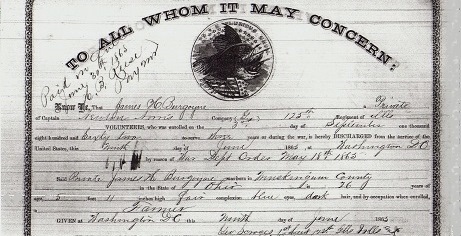 TO ALL WHOM IT MAY CONCERN:
Paid in
1865
Know Ye, That James H Burgoyne Private
of Captain Company 125th Regiment of Ills
VOLUNTEERS, who was enrolled on the day of September one thousand
eight hundred and Sixty two to serve years or during the war, is hereby DISCHARGED from the service of the
United States, this Ninth day of June 1865 at Washington D C
by reason of War Dept Order May 18th 1865
Said Private James H. Burgoyne was born in Muskingum County
in the State of Ohio is 26 years of
age, 5 feet 11 inches high Fair complexion, blue eyes, dark hair, and by occupation when enrolled,
Farmer
GIVEN at Washington D C this Ninth day of June 1865